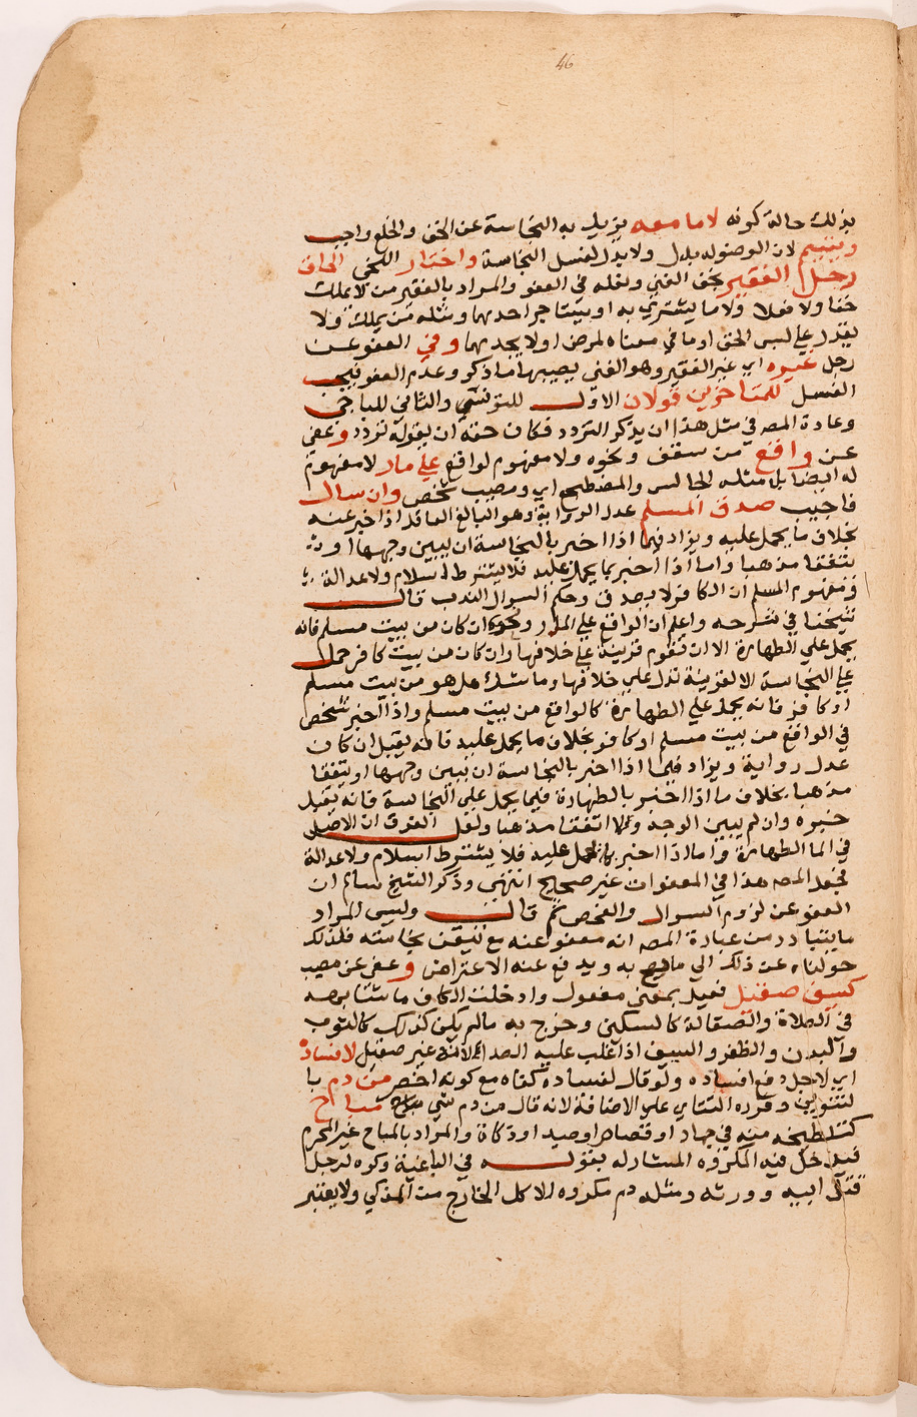 46
بذلك حالة كونه لا ما معه يزيل به النجاسة عن الخف والخلع واجب
ويتيمم لان الوضوء له بدل ولا بدل لغسل النجاسة واختار اللخمي الحاق
رجل الفقير بخف الغني ونقله في العفو والمراد بالفقير من لا يملك
خفا ولا نعلا ولا ما يشتري به او يستاجر احدهما ومثله من يملك ولا
يقدر على لبس الخف او ما في معناه لمرض او لا يجدهما وفي العفو عن
رجل غيره اي غير الفقير وهو الغني يصيبها ما ذكر وعدم العفو فيجب
الغسل للمتاخرين قولان الاول للتونسي والثاني للباجي
وعادة المصـ في مثل هذا ان يذكر التردد فكان حقه ان يقول تردد وعفي
عن واقع من سقف ونحوه ولا مفهوم لواقع على مار لا مفهوم
له ايضا بل مثله الجالس والمضطجع اي ومصيب شخص وان سال
فاجيب صدق المسلم عدل الرواية وهو البالغ العاقل اذا اخبر عنه
بخلاف ما يحمل عليه ويزاد فيما اذا اخبر بالنجاسة ان يبين وجهها او
يتفقا مذهبا واما اذا اخبر بما يحمل عليه فلا يشترط اسلام ولا عدالة
ومفهوم المسلم ان الكافر لا يصدق وحكم السوال الندب قال
شيخنا في شرحه واعلم ان الواقع على المار ونحوه ان كان من بيت مسلم فانه
يحمل على الطهارة الا ان تقوم قرينة على خلافها وان كان من بيت كافر حمل
على النجاسة الا لقرينة تدل على خلافها وما شك هل هو من بيت مسلم
او كافر فانه يحمل على الطهارة كالواقع من بيت مسلم واذا اخبر شخص
في الواقع من بيت مسلم او كافر بخلاف ما يحمل عليه فانه يقبل ان كان
عدل رواية ويزاد فيما اذا اخبر بالنجاسة ان يبين وجهها او يتفقا
مذهبا بخلاف ما اذا اخبر بالطهارة فيما يحمل على النجاسة فانه يقبل
خبره وان لم يبين الوجه ولا اتفقا مذهبا ولعل الفرق ان الاصل
في الما الطهارة واما اذا اخبر بما يحمل عليه فلا يشترط اسلام ولا عدالة
فجعل المصـ هذا في المعفوات غير صحيح انتهى وذكر الشيخ سالم ان
العفو عن لزوم السوال والفحص ثم قال وليس المراد
ما يتبادر من عبارة المصـ انه معفو عنه مع تيقن نجاسته فلذلك
حولناه عن ذلك الى ما يصح به ويدفع عنه الاعتراض وعفي عن مصيب
كسيف صقيل فعيل بمعنى مفعول وادخلت الكاف ما شابهه
في الصلاة والصقالة كالسكين وخرج به ما لم يكن كذلك كالثوب
والبدن والظفر والسيف اذا غلب عليه الصدا لانه غير صقيل لافساده
اي لاجل دفع افساده ولو قال لفساده كفاه مع كونه اخصر من دم با
لتنوين وقرره التتاي على الاضافة لانه قال من دم شي مباح مباح
كتلطيخه منه في جهاد او قصاص او صيد او ذكاة والمراد بالمباح غير المحرم
فيدخل فيه المكروه المشار له بقوله في الباغية وكره لرجل
قتل ابيه وورثه ومثله دم مكروه الاكل الخارج من المذكي ولا يعتبر